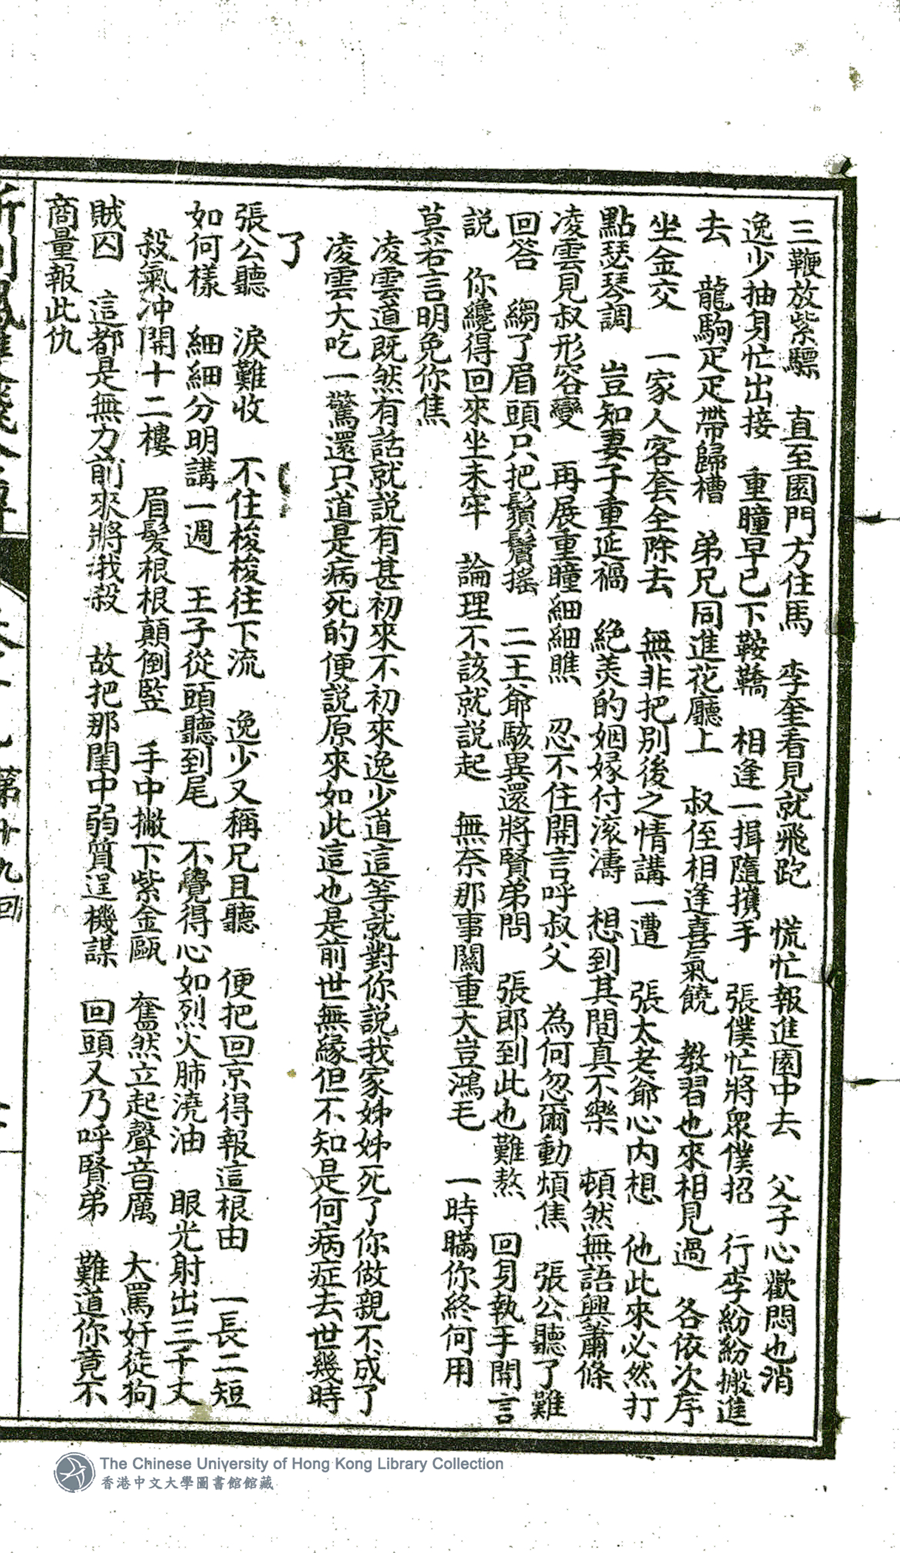 三鞭放紫騮　直至園門方住馬　李奎看見就飛跑　慌忙報進園中去　父子心歡悶也消
逸少抽身忙出接　重瞳早已下鞍鞽　相逢一揖隨攜手　張僕忙將眾僕招　行李紛紛搬進
去　龍駒疋疋帶歸槽　弟兄同進花廳上　叔侄相逢喜氣饒　教習也來相見過　各依次序
坐金交　一家人客套全除去　無非把別後之情講一遭　張太老爺心內想　他此來必然打
點瑟琴調　豈知妻子重延禍　絕美的姻緣付滾濤　想到其間真不樂　頓然無語興蕭條
凌雲見叔形容變　再展重瞳細細瞧　忍不住開言呼叔父　為何忽爾動煩焦　張公聽了難
回答　縐了眉頭只把鬚鬢搖　二王爺駭異還將賢弟問　張郎到此也難熬　回身執手開言
說　你纔得回來坐未牢　論理不該就說起　無奈那事關重大豈鴻毛　一時瞞你終何用
莫若言明免你焦
凌雲道既然有話就說有甚初來不初來逸少道這等就對你說我家姊姊死了你做親不成了
凌雲大吃一驚還只道是病死的便說原來如此這也是前世無緣但不知是何病症去世幾時
了
張公聽　淚難收　不住梭梭往下流　逸少又稱兄且聽　便把回京得報這根由　一長二短
如何樣　細細分明講一週　王子從頭聽到尾　不覺得心如烈火肺澆油　眼光射出三千丈
殺氣沖開十二樓　眉髮根根顛倒豎　手中撇下紫金甌　奮然立起聲音厲　大罵奸徒狗
賊囚　這都是無力前來將我殺　故把那閨中弱質逞機謀　回頭又乃呼賢弟　難道你竟不
商量報此仇
第十九回
The Chinese University of Hong Kong Library Collection
香港中文大學圖書館館藏